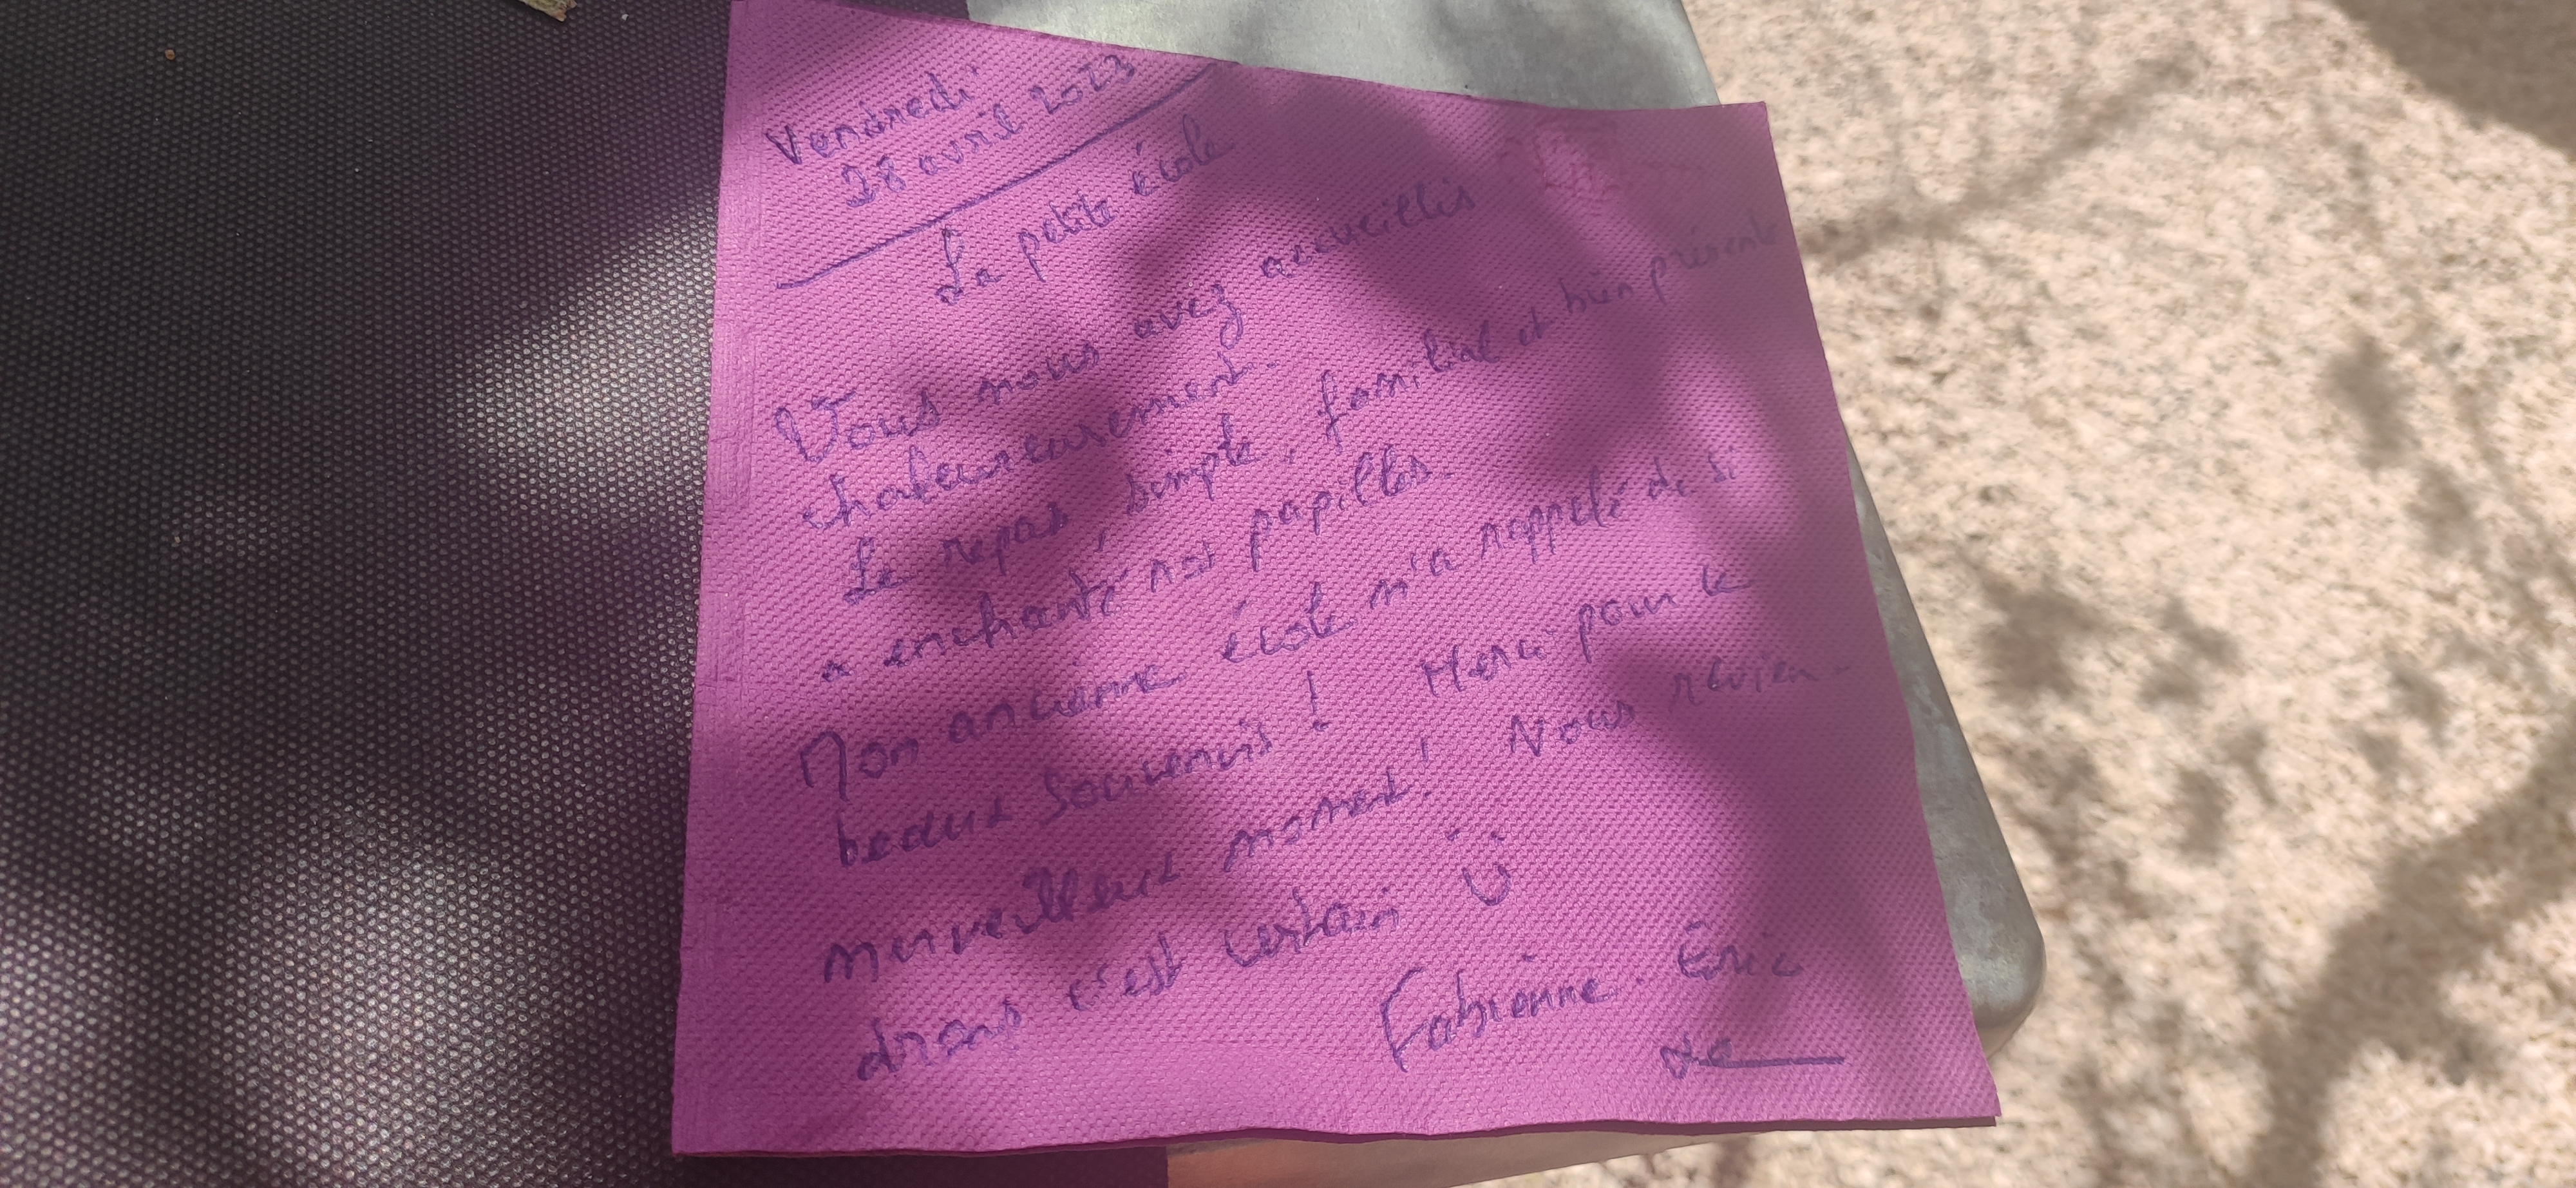 Vendredi
28 avril 2023
La petite école
Vous nous avez accueillis
chaleureusement.
Le repas, simple, familial et bien présenté
a enchanté nos papilles.
Mon ancienne école m'a rappelé de si
beaux souvenirs ! Merci pour le
merveilleux moment ! Nous revien-
drons c'est certain
Fabienne. Eric